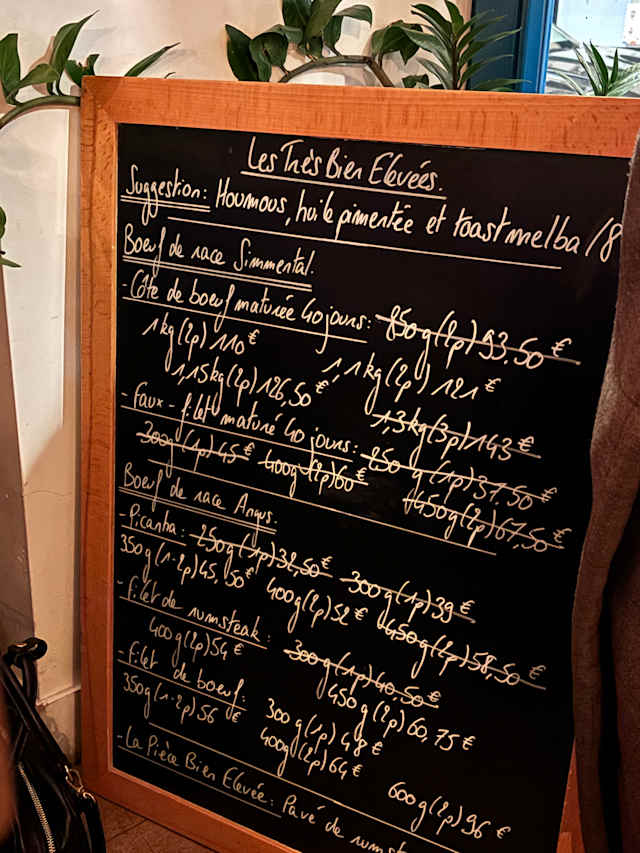 Les Très Bien Elevées.
Suggestion: Houmous, huile pimentée et toast melba /8
Boeuf de race Simmental.
- Côte de boeuf maturée 40 jours: 850g(2p)93,50€
1kg(2p)110€ 1,1kg(2p)121€
1,15kg(2p)126,50€ 1,3kg(3p)143€
- Faux-filet maturé 40 jours: 250g(1p)37,50€
300g(1p)45€ 400g(2p)60€ 450g(2p)67,50€
Boeuf de race Angus.
- Picanha: 250g(1p)32,50€ 300g(1p)39€
350g(1-2p)45,50€ 400g(2p)52€ 450g(2p)58,50€
- Filet de rumsteak: 300g(1p)40,50€
400g(2p)54€ 450g(2p)60,75€
- Filet de boeuf: 300g(1p)48€
350g(1-2p)56€ 400g(2p)64€ 600g(2p)96€
- La Pièce Bien Elevée: Pavé de